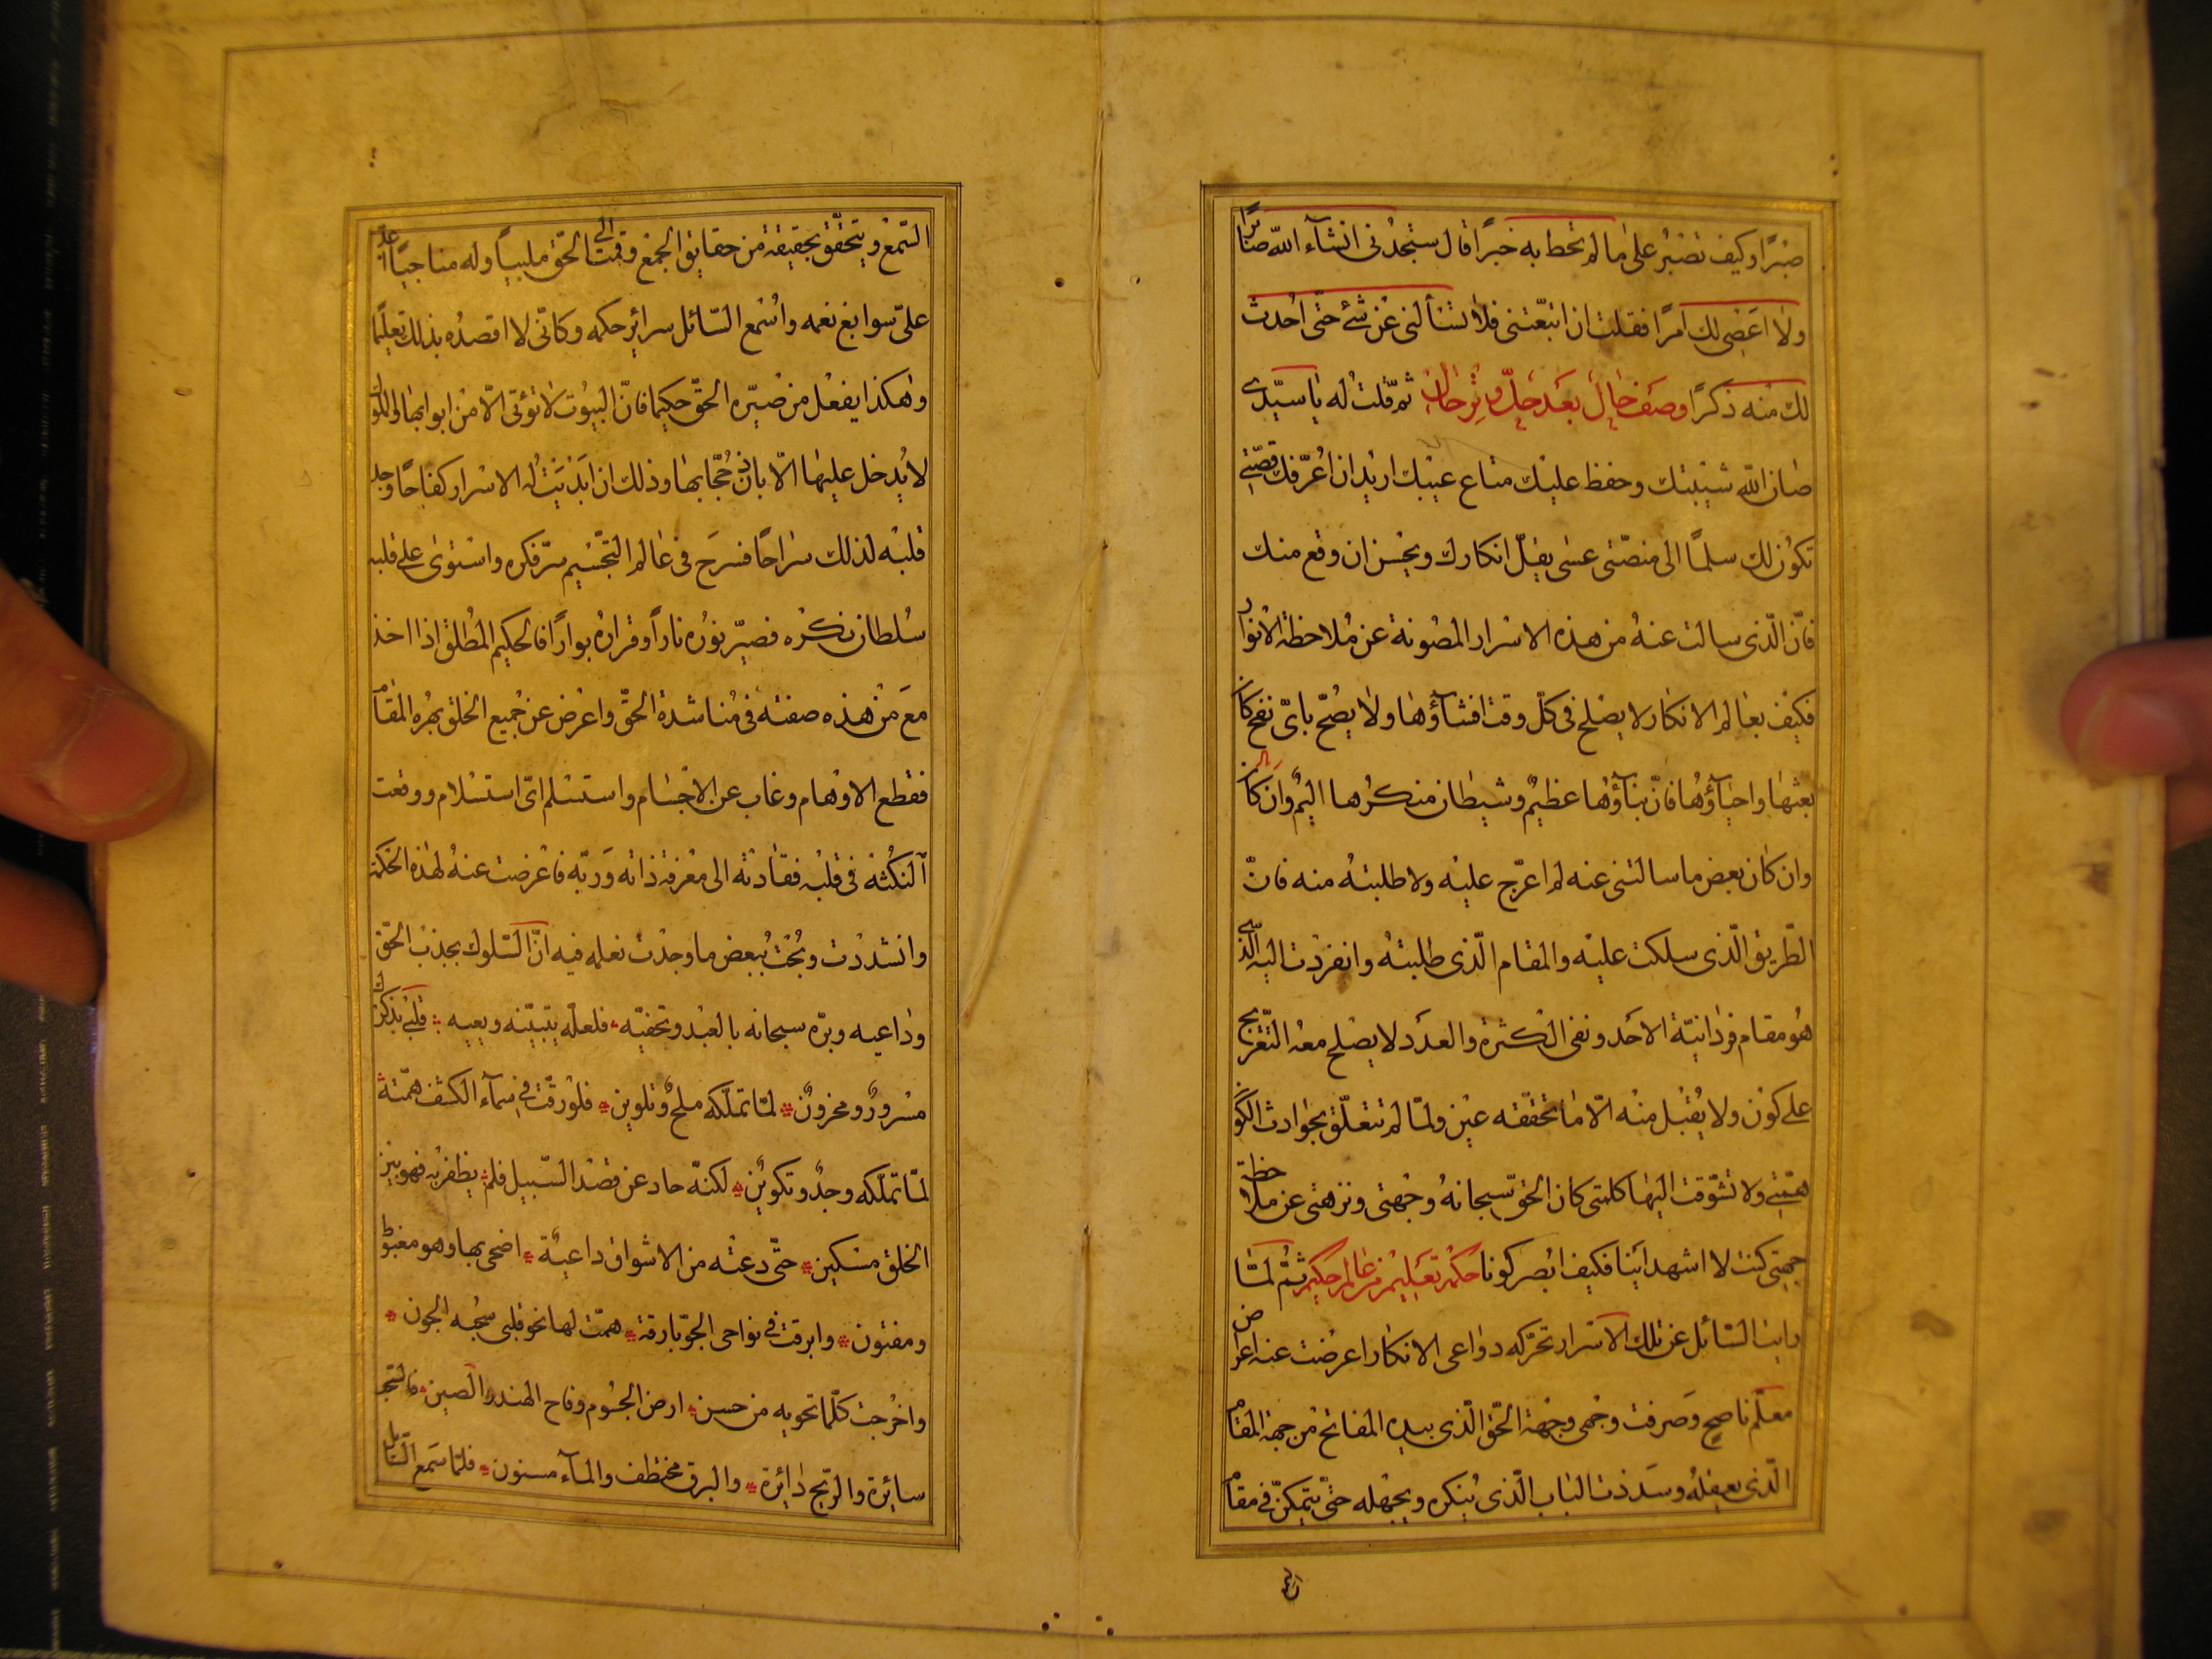 صبرًا وكيف تصبر على ما لم تحط به خبرًا قال ستجدنى انشاء الله صابرًا
ولا اعصى لك امرًا فقلت ان اتبعتنى فلا تسألنى عن شئ حتّى احدث
لك منه ذكرًا وصف حال بعد حلّ وترحال ثم قلت له يا سيّدى
صان الله شيبتك وحفظ عليك متاع عيبك اريد ان اعرّفك قصّتى
تكون لك سلمًا الى منصّتى عسى يقلّ انكارك ويحسن ان وقع منك
فانّ الّذى سالت عنه من هذه الاسرار المصونة عن ملاحظة الانوار
فكيف بعالم الانكار لا يصلح فى كلّ وقت افشآؤها ولا يصحّ باىّ نفخ كان
بعثها واحيآؤها فانّ بنآؤها عظيم وشيطان منكرها اليم وان كان
وان كان بعض ما سالتنى عنه لم اعرّج عليه ولا طلبته منه فانّ
الطّريق الّذى سلكت عليه والمقام الّذى طلبته وانفردت اليه الّذى
هو مقام فردانيّة الاحد ونفى الكثرة والعدد لا يصلح معه التّعريج
على كون ولا يقبل منه الّا ما تحققه عين ولمّا لم تتعلّق بحوادث الكون
همّتى ولا تشوّقت اليها كلمتى كان الحقّ سبحانه وجهتى ونزهتى عن ملاحظة
جهتى كنت لا اشهد اينا فكيف ابصر كونا حكمة تعليم من عالم حكيم ثمّ لمّا
رايت السّائل عن تلك الاسرار تحرّكه دواعى الانكار اعرضت عنه اعراض
معلّم ناصح وصرفت وجهى وجهة الحقّ الّذى بيده المفاتح من جهة المقام
الّذى يعقله وسددت الباب الّذى ينكره ويجهله حتّى يتمكّن فى مقام
السّمع ويتحقّق بحقيقة من حقايق الجمع وقمت الى الحقّ ملبيًا وله مناجيًا
علىّ سوابغ نعمه واسمع السّائل سراير حكمه وكانّى لا اقصده بذلك تعليمًا
وهكذا يفعل من صيّره الحقّ حكيما فانّ البيوت لا تؤتى الّا من ابوابها والملوك
لا يدخل عليها الّا باذن حجّابها وذلك ان ابديت له الاسرار كفاحًا وجد
قلبه لذلك سراحًا فسرح فى عالم التجسيم سرّ فكره واستوى على قلبه
سلطان نكره فصيّر نوره نارًا وقراره بوارًا فالحكيم المطلق اذا اخذ
مع من هذه صفته فى مناشدة الحقّ واعرض عن جميع الخلق بهره المقام
فقطع الاوهام وغاب عن الاجسام واستسلم اىّ استسلام ووقعت
النكتة فى قلبه فقادته الى معرفة ذاته وربّه فاعرضت عنه لهذه الحكمة
وانشدت وبحت ببعض ما وجدت نعلمه فيه انّ السّلوك بجذب الحقّ
وداعيه وبرّه سبحانه بالعبد وتحفيّه فلعلّه يتبيّنه ويعيه قلبى بذكرك
مسرور ومحزون لمّا تملّكه ملح وتلوين فلو رقّت فى سمآء الكشف همّته
لمّا تملّكه وجد وتكوين لكنّه حاد عن قصد السّبيل فلم يظفر به فهو بين
الخلق مسكين حتّى دعته من الاشواق داعية اضحى بها وهو مغبوط
ومفتون وابرقت فى نواحى الجوّ بارقة همت لها نحو قلبى سحبه الجون
واخرجت كلّما تحويه من حسن ارض الجسوم وفاح الهند والصين
سائرة والرّيح دائرة والبرق مختطف والمآء مسنون فلمّا سمع السّائل